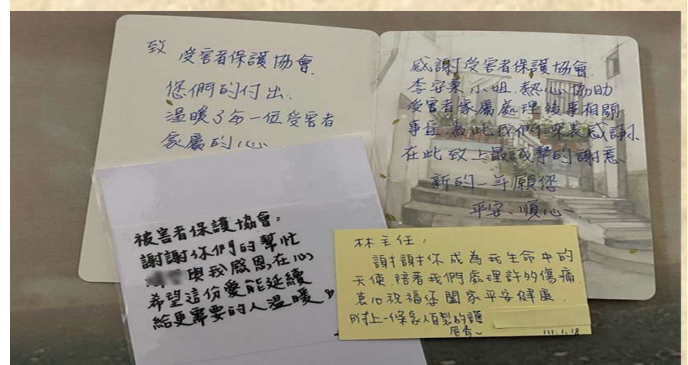 致 受害者保護協會
您們的付出、
溫暖了每一位受害者
家屬的心
感謝受害者保護協會
小姐、熱心協助
受害者家屬處理後事相關
事宜、為此我們 表感謝
在此致上最誠摯的謝意
新的一年願您
平安、順心
被害者保護協會,
謝謝你們的幫忙
與我感恩在心
希望這份愛能延續
給更需要的人溫暖
林主任,
謝謝你成為我生命中的
天使 陪著我們處理許的傷痛
衷心祝福您闔家平安健康
附上一條家人製的護
唇膏~
111.1.18